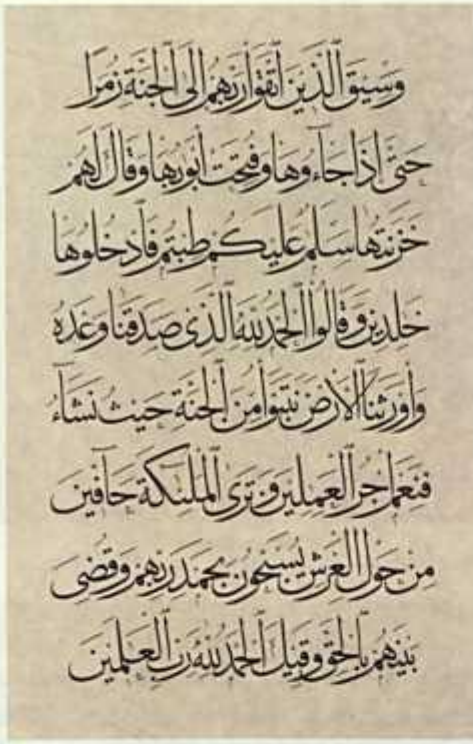 وَسِيقَ ٱلَّذِينَ ٱتَّقَوْا۟ رَبَّهُمْ إِلَى ٱلْجَنَّةِ زُمَرًا
حَتَّىٰ إِذَا جَآءُوهَا وَفُتِحَتْ أَبْوَٰبُهَا وَقَالَ لَهُمْ
خَزَنَتُهَا سَلَٰمٌ عَلَيْكُمْ طِبْتُمْ فَٱدْخُلُوهَا
خَٰلِدِينَ وَقَالُوا۟ ٱلْحَمْدُ لِلَّهِ ٱلَّذِى صَدَقَنَا وَعْدَهُۥ
وَأَوْرَثَنَا ٱلْأَرْضَ نَتَبَوَّأُ مِنَ ٱلْجَنَّةِ حَيْثُ نَشَآءُ
فَنِعْمَ أَجْرُ ٱلْعَٰمِلِينَ وَتَرَى ٱلْمَلَٰٓئِكَةَ حَآفِّينَ
مِنْ حَوْلِ ٱلْعَرْشِ يُسَبِّحُونَ بِحَمْدِ رَبِّهِمْ وَقُضِىَ
بَيْنَهُم بِٱلْحَقِّ وَقِيلَ ٱلْحَمْدُ لِلَّهِ رَبِّ ٱلْعَٰلَمِينَ